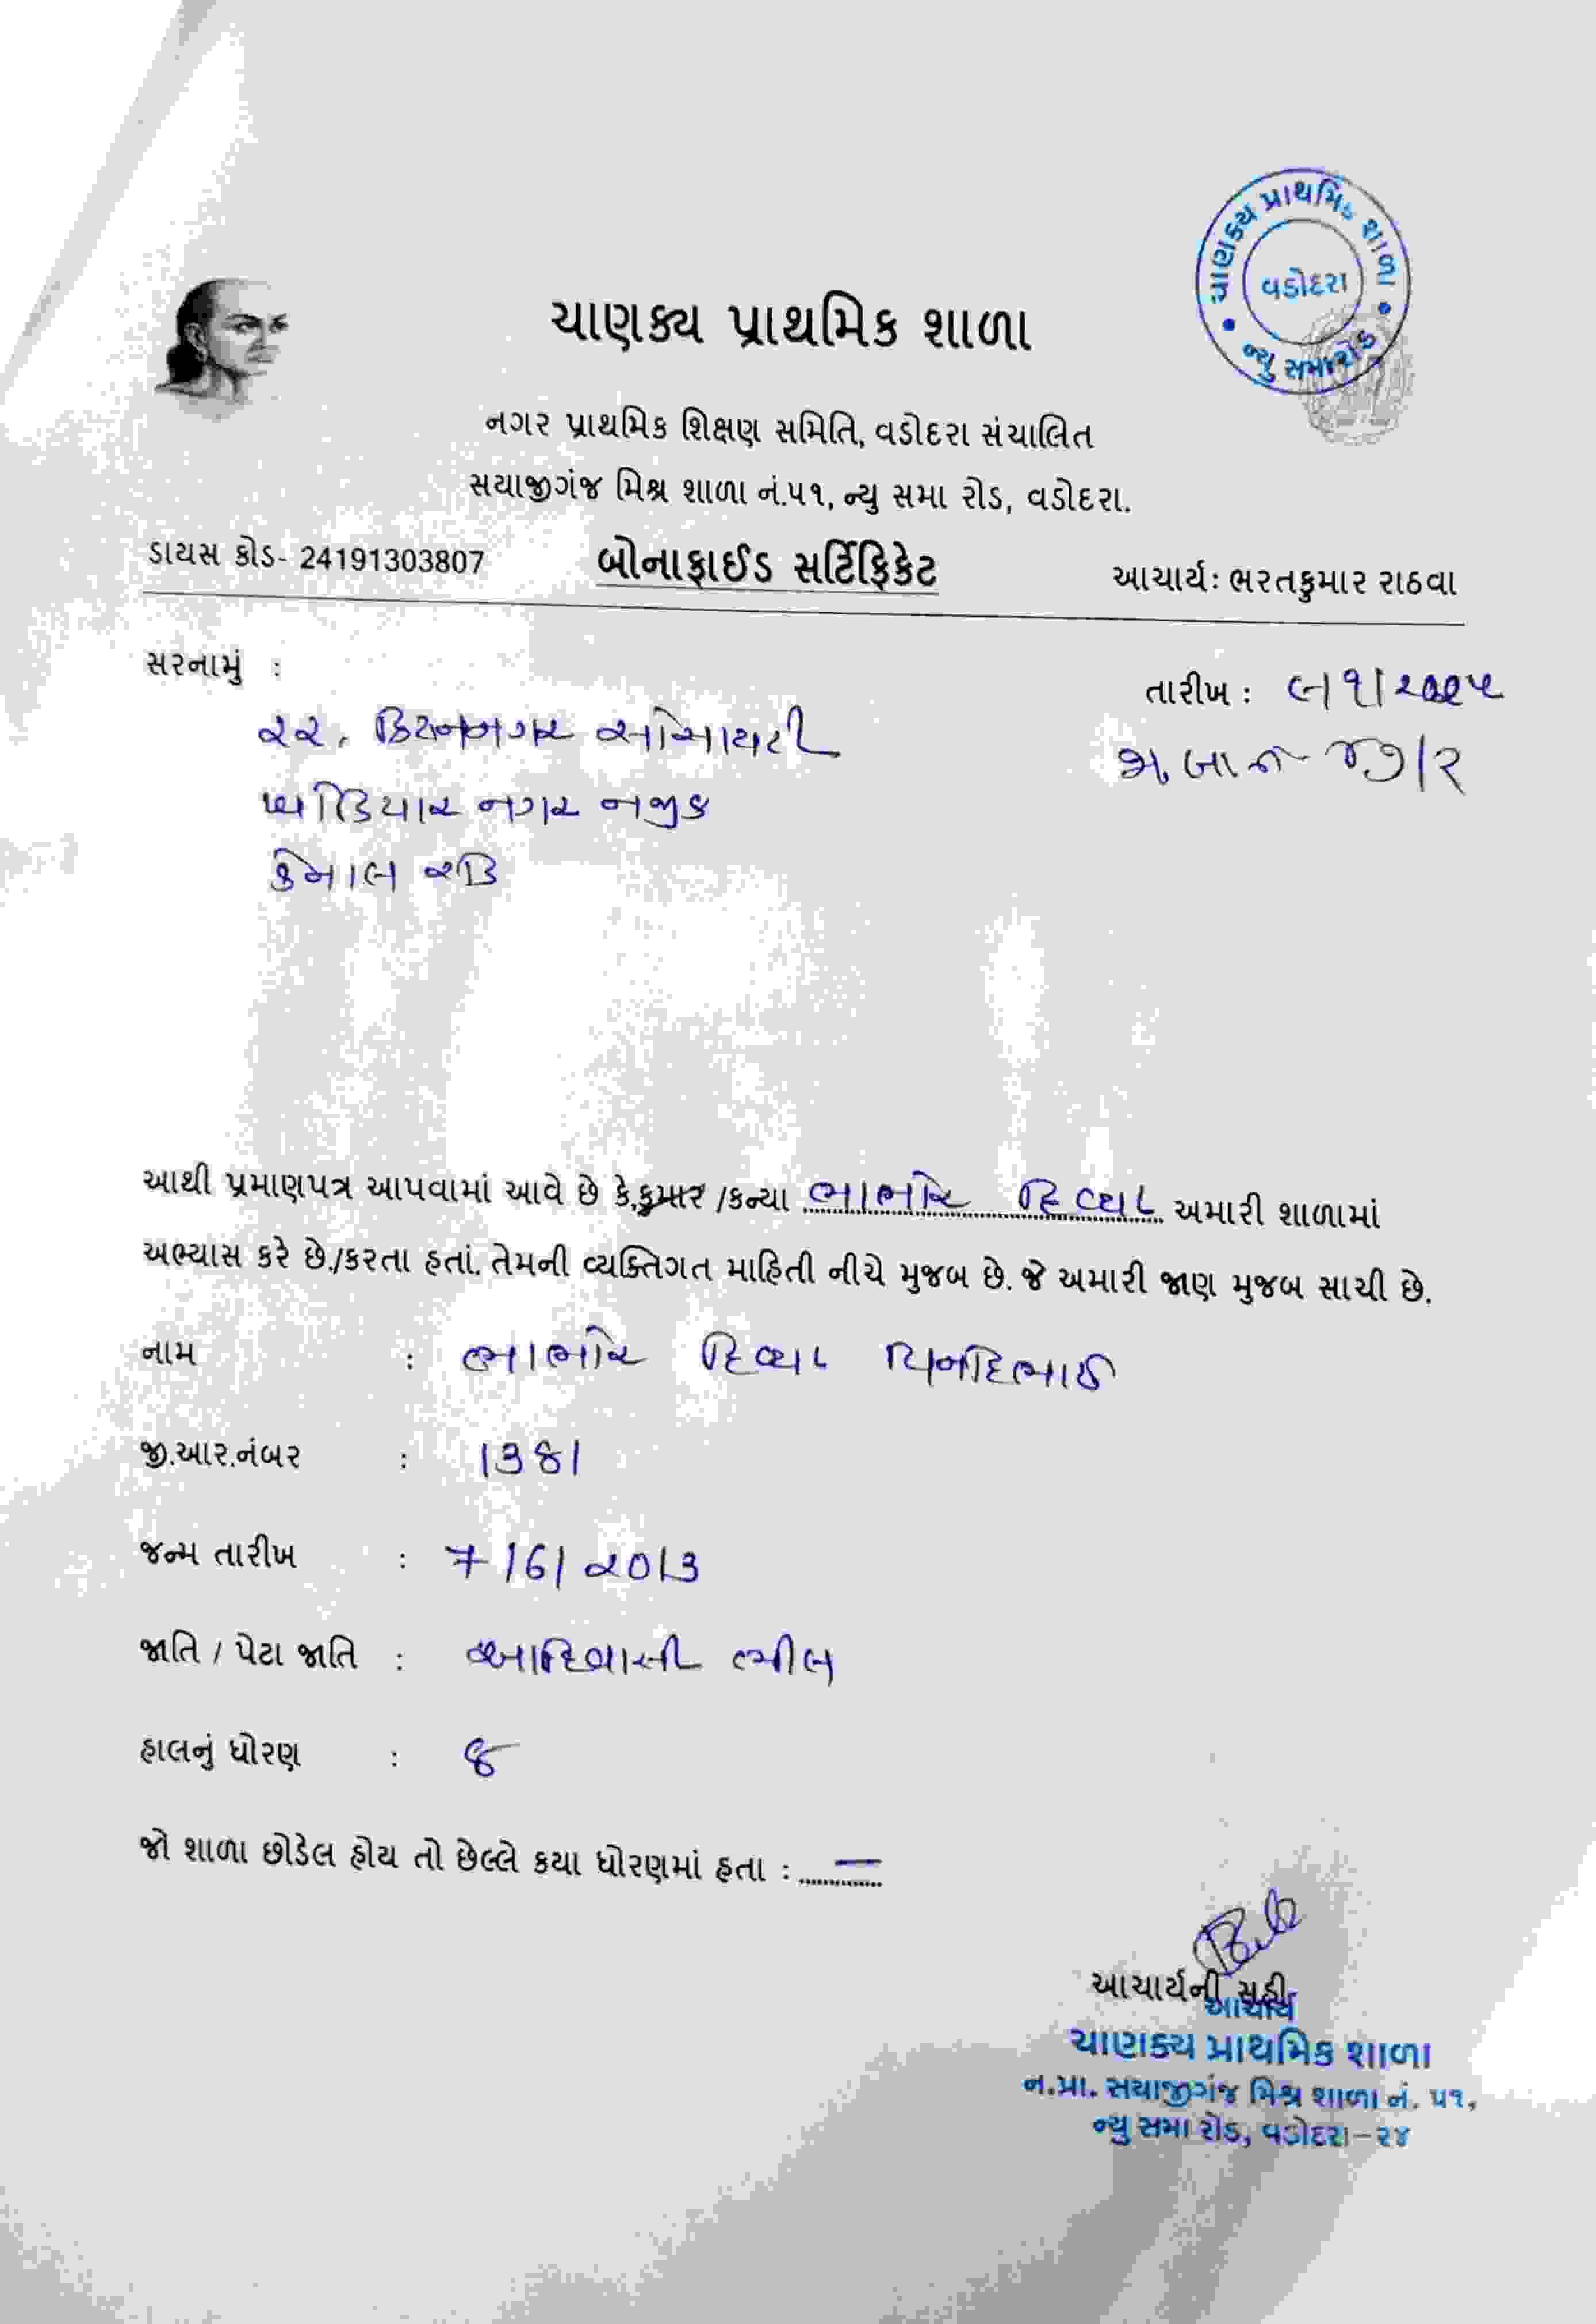 ચાણક્ય પ્રાથમિક શાળા
ચાણક્ય પ્રાથમિક શાળા
વડોદરા
ન્યુ સમારોડ
નગર પ્રાથમિક શિક્ષણ સમિતિ, વડોદરા સંચાલિત
સયાજીગંજ મિશ્ર શાળા નં.૫૧, ન્યુ સમા રોડ, વડોદરા.
ડાયસ કોડ- 24191303807 બોનાફાઈડ સર્ટિફિકેટ આચાર્ય: ભરતકુમાર રાઠવા
સરનામું :
તારીખ :
૨૨,
નગર નજીક
આથી પ્રમાણપત્ર આપવામાં આવે છે કે,કુમાર /કન્યા ભાભોર દિવ્યા અમારી શાળામાં
અભ્યાસ કરે છે./કરતા હતાં. તેમની વ્યક્તિગત માહિતી નીચે મુજબ છે. જે અમારી જાણ મુજબ સાચી છે.
નામ : ભાભોર દિવ્યા
જી.આર.નંબર : 1381
જન્મ તારીખ : 7/6/૨013
જાતિ / પેટા જાતિ : આદિવાસી ભીલ
હાલનું ધોરણ : 8
જો શાળા છોડેલ હોય તો છેલ્લે કયા ધોરણમાં હતા : —
આચાર્યની સહી
આચાર્ય
ચાણક્ય પ્રાથમિક શાળા
ન.પ્રા. સયાજીગંજ મિશ્ર શાળા નં. ૫૧,
ન્યુ સમા રોડ, વડોદરા-૨૪